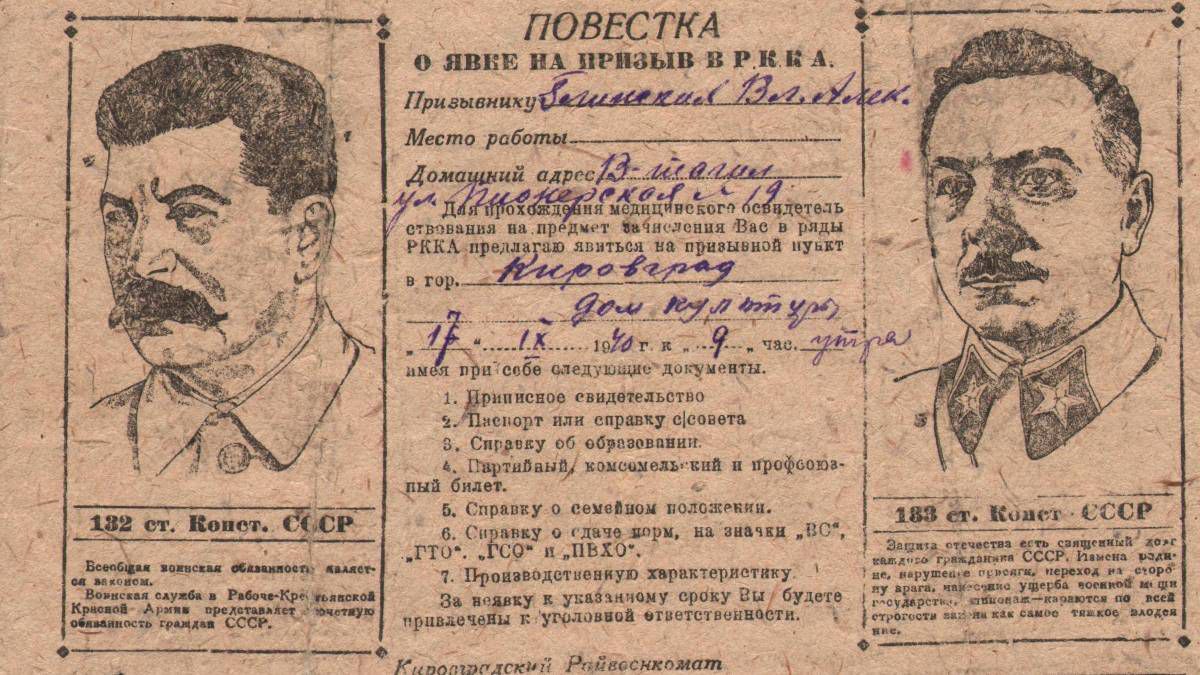 ПОВЕСТКА
О ЯВКЕ НА ПРИЗЫВ В Р.К.К А.
Призывнику Вл. Алек.
Место работы
Домашний адрес В-тагил
ул. Пионерская № 19
Для прохождения медицинского освидетель
ствования на предмет зачисления Вас в ряды
РККА предлагаю явиться на призывной пункт
в гор. Кировград
Дом культуры
„17“ IX 1940 г. к „9„ час. утра
имея при себе следующие документы.
1. Приписное свидетельство
2. Паспорт или справку с|совета
3. Справку об образовании.
4. Партийный, комсомельский и профсоюз-
ный билет.
5. Справку о семейном положении.
6. Справку о сдаче норм, на значки „ВС“,
„ГТО“. „ГСО“ и „ПВХО“.
7. Производственную характеристику
За неявку к указанному сроку Вы будете
привлечены к уголовной ответственности.
Кировградский Райвоенкомат
132 ст. Конст. СССР
Всеобщая воинская обязанность являет-
ся законом.
Воинская служба в Рабоче-Крестьянской
Красной Армии представляет почетную
обязанность граждан СССР.
133 ст. Конст СССР
Защита отечества есть священный долг
каждого гражданина СССР. Измена роди-
не, нарушение присяги, переход на сторо-
ну врага, нанесение ущерба военной мощи
государства, шпионаж—караются по всей
строгости закона как самое тяжкое злодея
ние.